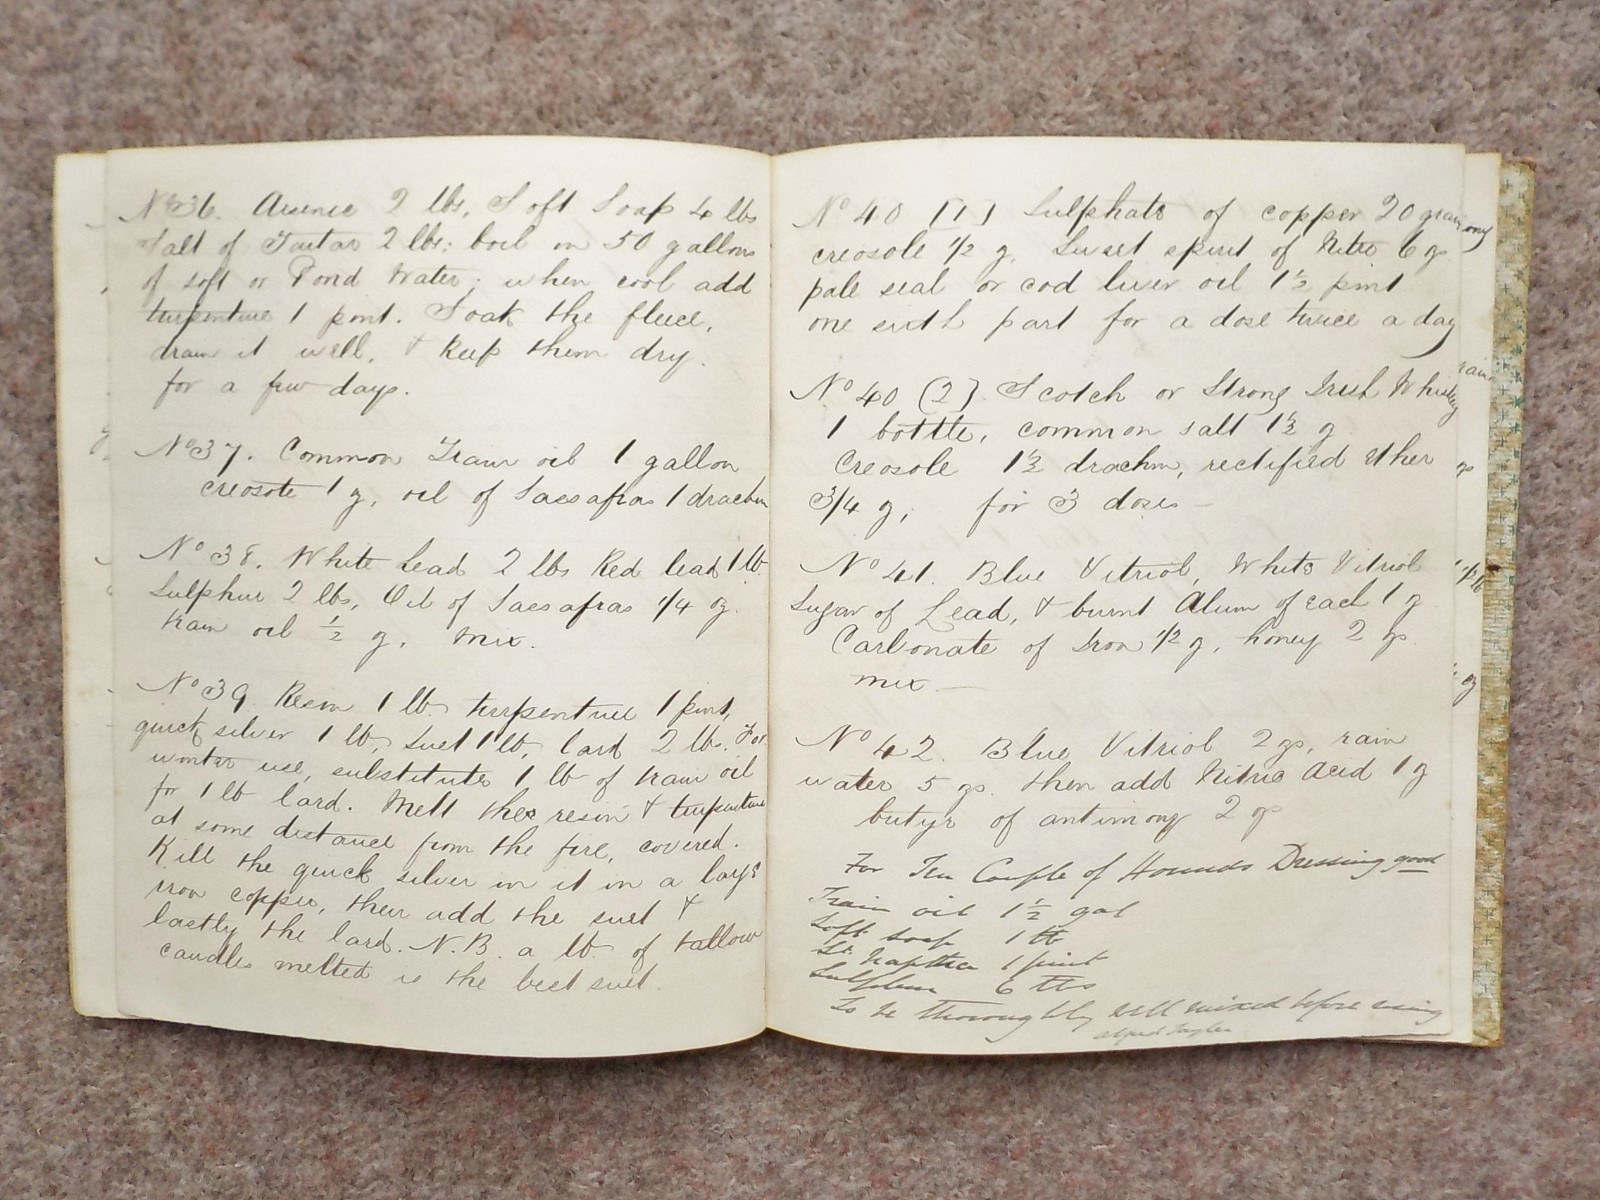 No 36. Arsenic 2 lbs, Soft Soap 4 lbs
Salt of Tartar 2 lbs; boil in 50 gallons
of soft or Pond Water; when cool add
turpentine 1 pint. Soak the fleece,
drain it well, & keep them dry.
for a few days.
No 37. Common Train oil 1 gallon
creosote 1 g, oil of Sassafras 1 drachm
No 38. White Lead 2 lbs Red lead 1 lb.
Sulphur 2 lbs, Oil of Sassafras 1/4 oz.
train oil 1/2 g, mix.
No 39. Resin 1 lb turpentine 1 pint,
quick silver 1 lb, Suet 1 lb, lard 2 lbs. For
winter use, substitute 1 lb of train oil
for 1 lb lard. Melt the resin & turpentine
at some distance from the fire, covered.
Kill the quick silver in it in a large
iron copper, then add the suet &
lastly the lard. N.B. a lb of tallow
candles melted is the best suet.
No 40 [1] Sulphate of copper 20 grains
creosole 1/2 g. Sweet spirit of Nitre 6 gs
pale seal or cod liver oil 1 1/2 pint
one sixth part for a dose twice a day
No 40 (2] Scotch or Strong Irish Whiskey
1 bottle, common salt 1 1/2 g
Creosole 1 1/2 drachm, rectified Ether
3/4 g, for 3 doses —
No 41. Blue Vitriol, White Vitriol
Sugar of Lead, & burnt Alum of each 1 g
Carbonate of Iron 1/2 g, honey 2 gs.
mix —
No 42. Blue Vitriol 2 gs, rain
water 5 gs. then add Nitric Acid 1 g
butyr of antimony 2 gs
For Ten Couple of Hounds Dressing good
Train oil 1 1/2 gal
Soft soap 1 lb
Naptha 1 pint
Sulphur 6 lbs
To be thoroughly well mixed before using
Alfred Tayler